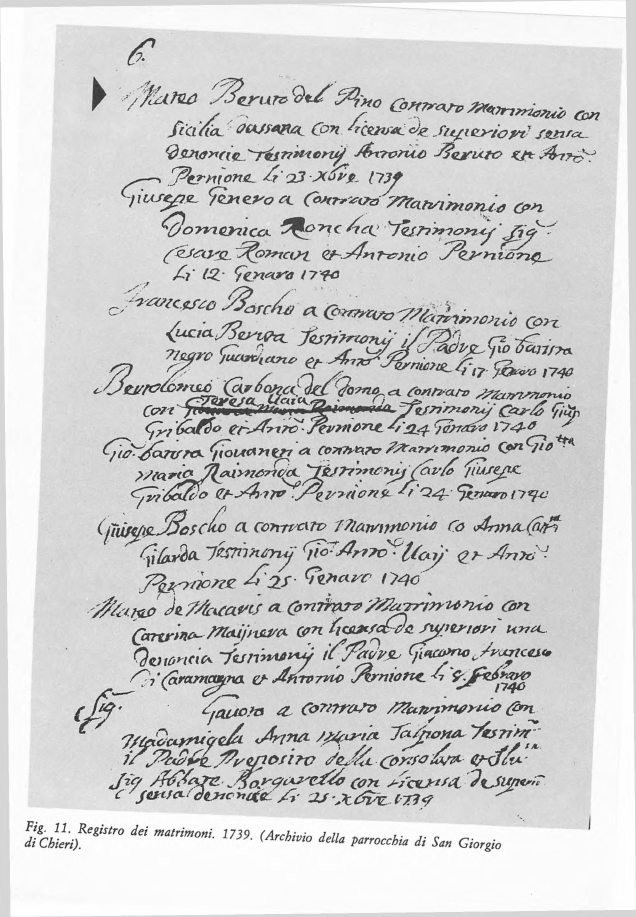 6.
Mateo Beruto del Pino Contrato Matrimonio con
Sicilia con licensa de superiori sensa
denoncie Testimonij Antonio Beruto et Anto.
Pernione Li 23 Xbre 1739
Giusepe Genero a Contrato Matrimonio con
Domenica Roncha Testimonij Sig.
Cesare Roman et Antonio Pernione
Li 12 Genaro 1740
Francesco Boscho a Contrato Matrimonio con
Lucia Testimonij il Padre Gio batista
negro Guardiano et Anto Pernione li 17 1740
Bertolomeo Carbona del a contrato Matrimonio
con Teresa Testimonij Carlo Giusp
Gribaldo et Anto. Pernione Li 24 Genaro 1740
Gio. batista Giouaneri a contrato Matrimonio con
Maria Raimonda Testimonij Carlo Giusepe
Gribaldo et Anto. Pernione li 24 Genaro 1740
Giusepe Boscho a contrato Matrimonio co Anna
Gilarda Testimonij Gio. Anto. Uaij et Anto.
Pernione Li 25 Genaro 1740
Mateo de Macaris a Contrato Matrimonio con
Caterina Maijnera con licensa de superiori una
denoncia Testimonij il Padre Giacomo francesco
Di Caramagna et Antonio Pernione li 8 febraro
1740
Sig. Gauoto a contrato Matrimonio Con
Madamigela Anna Maria Talpona Testim
il Padre Preposito della Consolata et
Sig Abbate Borgarello con Licensa de superii
sensa denoncie Li 25 Xbre 1739
Fig. 11. Registro dei matrimoni. 1739. (Archivio della parrocchia di San Giorgio
di Chieri).